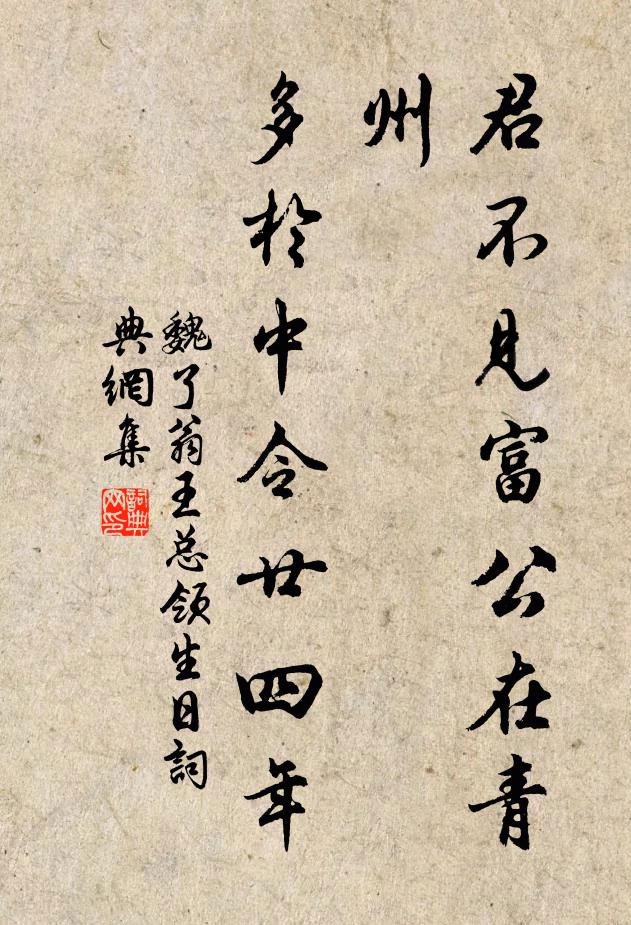 君不見富公在青
州
多於中令廿四年
魏了翁王总领生日詞
典網集
詞典
网印